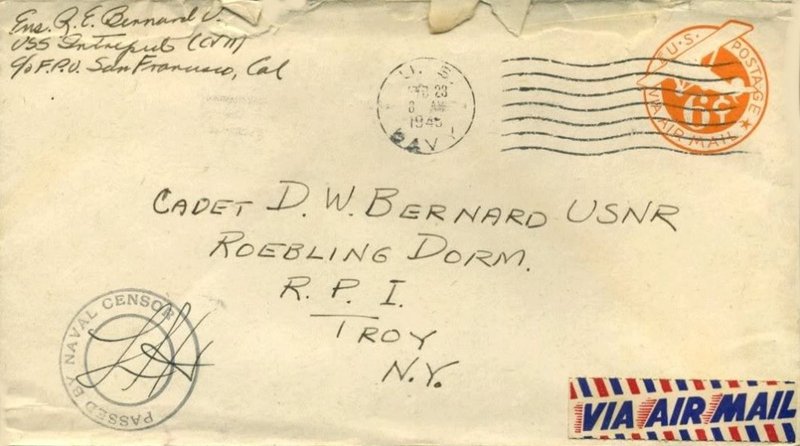 Ens. R. E. Bernard Jr.
USS Intrepid (CV11)
c/o F.P.O. San Francisco, Cal
U.S.
8 AM
1945
NAVY
U.S. POSTAGE
6¢
VIA AIR MAIL
CADET D. W. BERNARD USNR
ROEBLING DORM.
R. P. I.
TROY
N.Y.
PASSED BY NAVAL CENSOR
VIA AIR MAIL